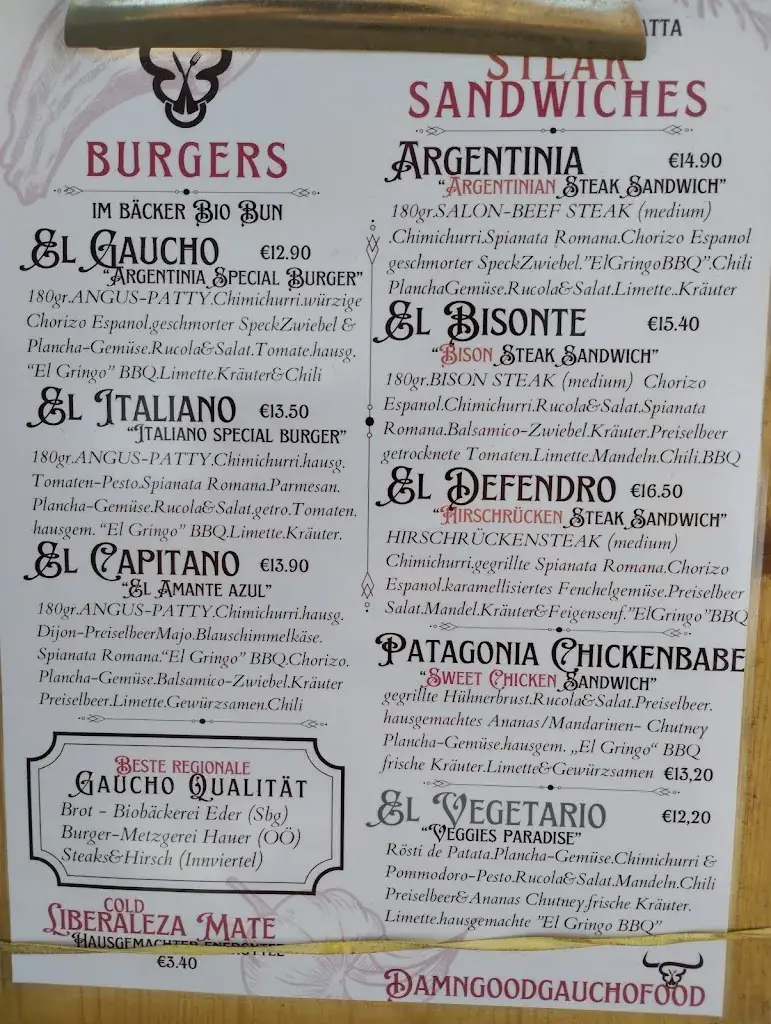 BURGERS
IM BÄCKER BIO BUN
EL GAUCHO €12.90
"ARGENTINIA SPECIAL BURGER"
180gr.ANGUS-PATTY.Chimichurri.würzige
Chorizo Espanol.geschmorter SpeckZwiebel &
Plancha-Gemüse.Rucola&Salat.Tomate.hausg.
"El Gringo" BBQ.Limette.Kräuter&Chili
EL ITALIANO €13.50
"ITALIANO SPECIAL BURGER"
180gr.ANGUS-PATTY.Chimichurri.hausg.
Tomaten-Pesto.Spianata Romana.Parmesan.
Plancha-Gemüse.Rucola&Salat.getro.Tomaten.
hausgem. "El Gringo" BBQ.Limette.Kräuter.
EL CAPITANO €13.90
"EL AMANTE AZUL"
180gr.ANGUS-PATTY.Chimichurri.hausg.
Dijon-PreiselbeerMajo.Blauschimmelkäse.
Spianata Romana."El Gringo" BBQ.Chorizo.
Plancha-Gemüse.Balsamico-Zwiebel.Kräuter
Preiselbeer.Limette.Gewürzsamen.Chili
BESTE REGIONALE
GAUCHO QUALITÄT
Brot - Biobäckerei Eder (Sbg)
Burger-Metzgerei Hauer (OÖ)
Steaks&Hirsch (Innviertel)
COLD
LIBERALEZA MATE
HAUSGEMACHTER
€3.40
STEAK
SANDWICHES
ARGENTINIA €14.90
"ARGENTINIAN STEAK SANDWICH"
180gr.SALON-BEEF STEAK (medium)
.Chimichurri.Spianata Romana.Chorizo Espanol
geschmorter SpeckZwiebel."ElGringoBBQ".Chili
PlanchaGemüse.Rucola&Salat.Limette..Kräuter
EL BISONTE €15.40
"BISON STEAK SANDWICH"
180gr.BISON STEAK (medium) Chorizo
Espanol.Chimichurri.Rucola&Salat.Spianata
Romana.Balsamico-Zwiebel.Kräuter.Preiselbeer
getrocknete Tomaten.Limette.Mandeln.Chili.BBQ
EL DEFENDRO €16.50
"HIRSCHRÜCKEN STEAK SANDWICH"
HIRSCHRÜCKENSTEAK (medium)
Chimichurri.gegrillte Spianata Romana.Chorizo
Espanol.karamellisiertes Fenchelgemüse.Preiselbeer
Salat.Mandel.Kräuter&Feigensenf."ElGringo"BBQ
PATAGONIA CHICKENBABE
"SWEET CHICKEN SANDWICH"
gegrillte Hühnerbrust.Rucola&Salat.Preiselbeer.
hausgemachtes Ananas/Mandarinen- Chutney
Plancha-Gemüse.hausgem. „El Gringo“ BBQ
frische Kräuter.Limette&Gewürzsamen €13,20
EL VEGETARIO €12,20
"VEGGIES PARADISE"
Rösti de Patata.Plancha-Gemüse.Chimichurri &
Pommodoro-Pesto.Rucola&Salat.Mandeln.Chili
Preiselbeer&Ananas Chutney.frische Kräuter.
Limette.hausgemachte "El Gringo BBQ"
DAMNGOODGAUCHOFOOD